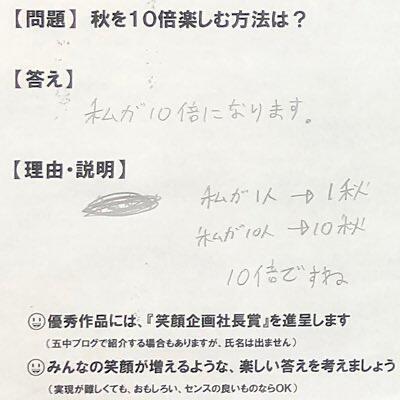 【問題】 秋を10倍楽しむ方法は？
【答え】
私が10倍になります。
【理由・説明】
私が1人 → 1秋
私が10人 → 10秋
10倍ですね
優秀作品には、『笑顔企画社長賞』を進呈します
（五中ブログで紹介する場合もありますが、氏名は出ません）
みんなの笑顔が増えるような、楽しい答えを考えましょう
（実現が難しくても、おもしろい、センスの良いものならOK）